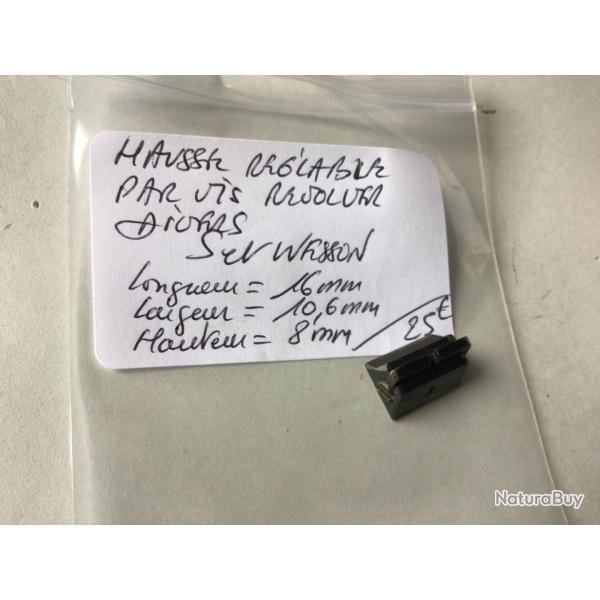 HAUSSE REGLABLE
PAR VIS REVOLVER
DIVERS
S et WESSON
Longueur = 16mm
Largeur = 10,6mm
Hauteur = 8mm / 25€
NaturaBuy